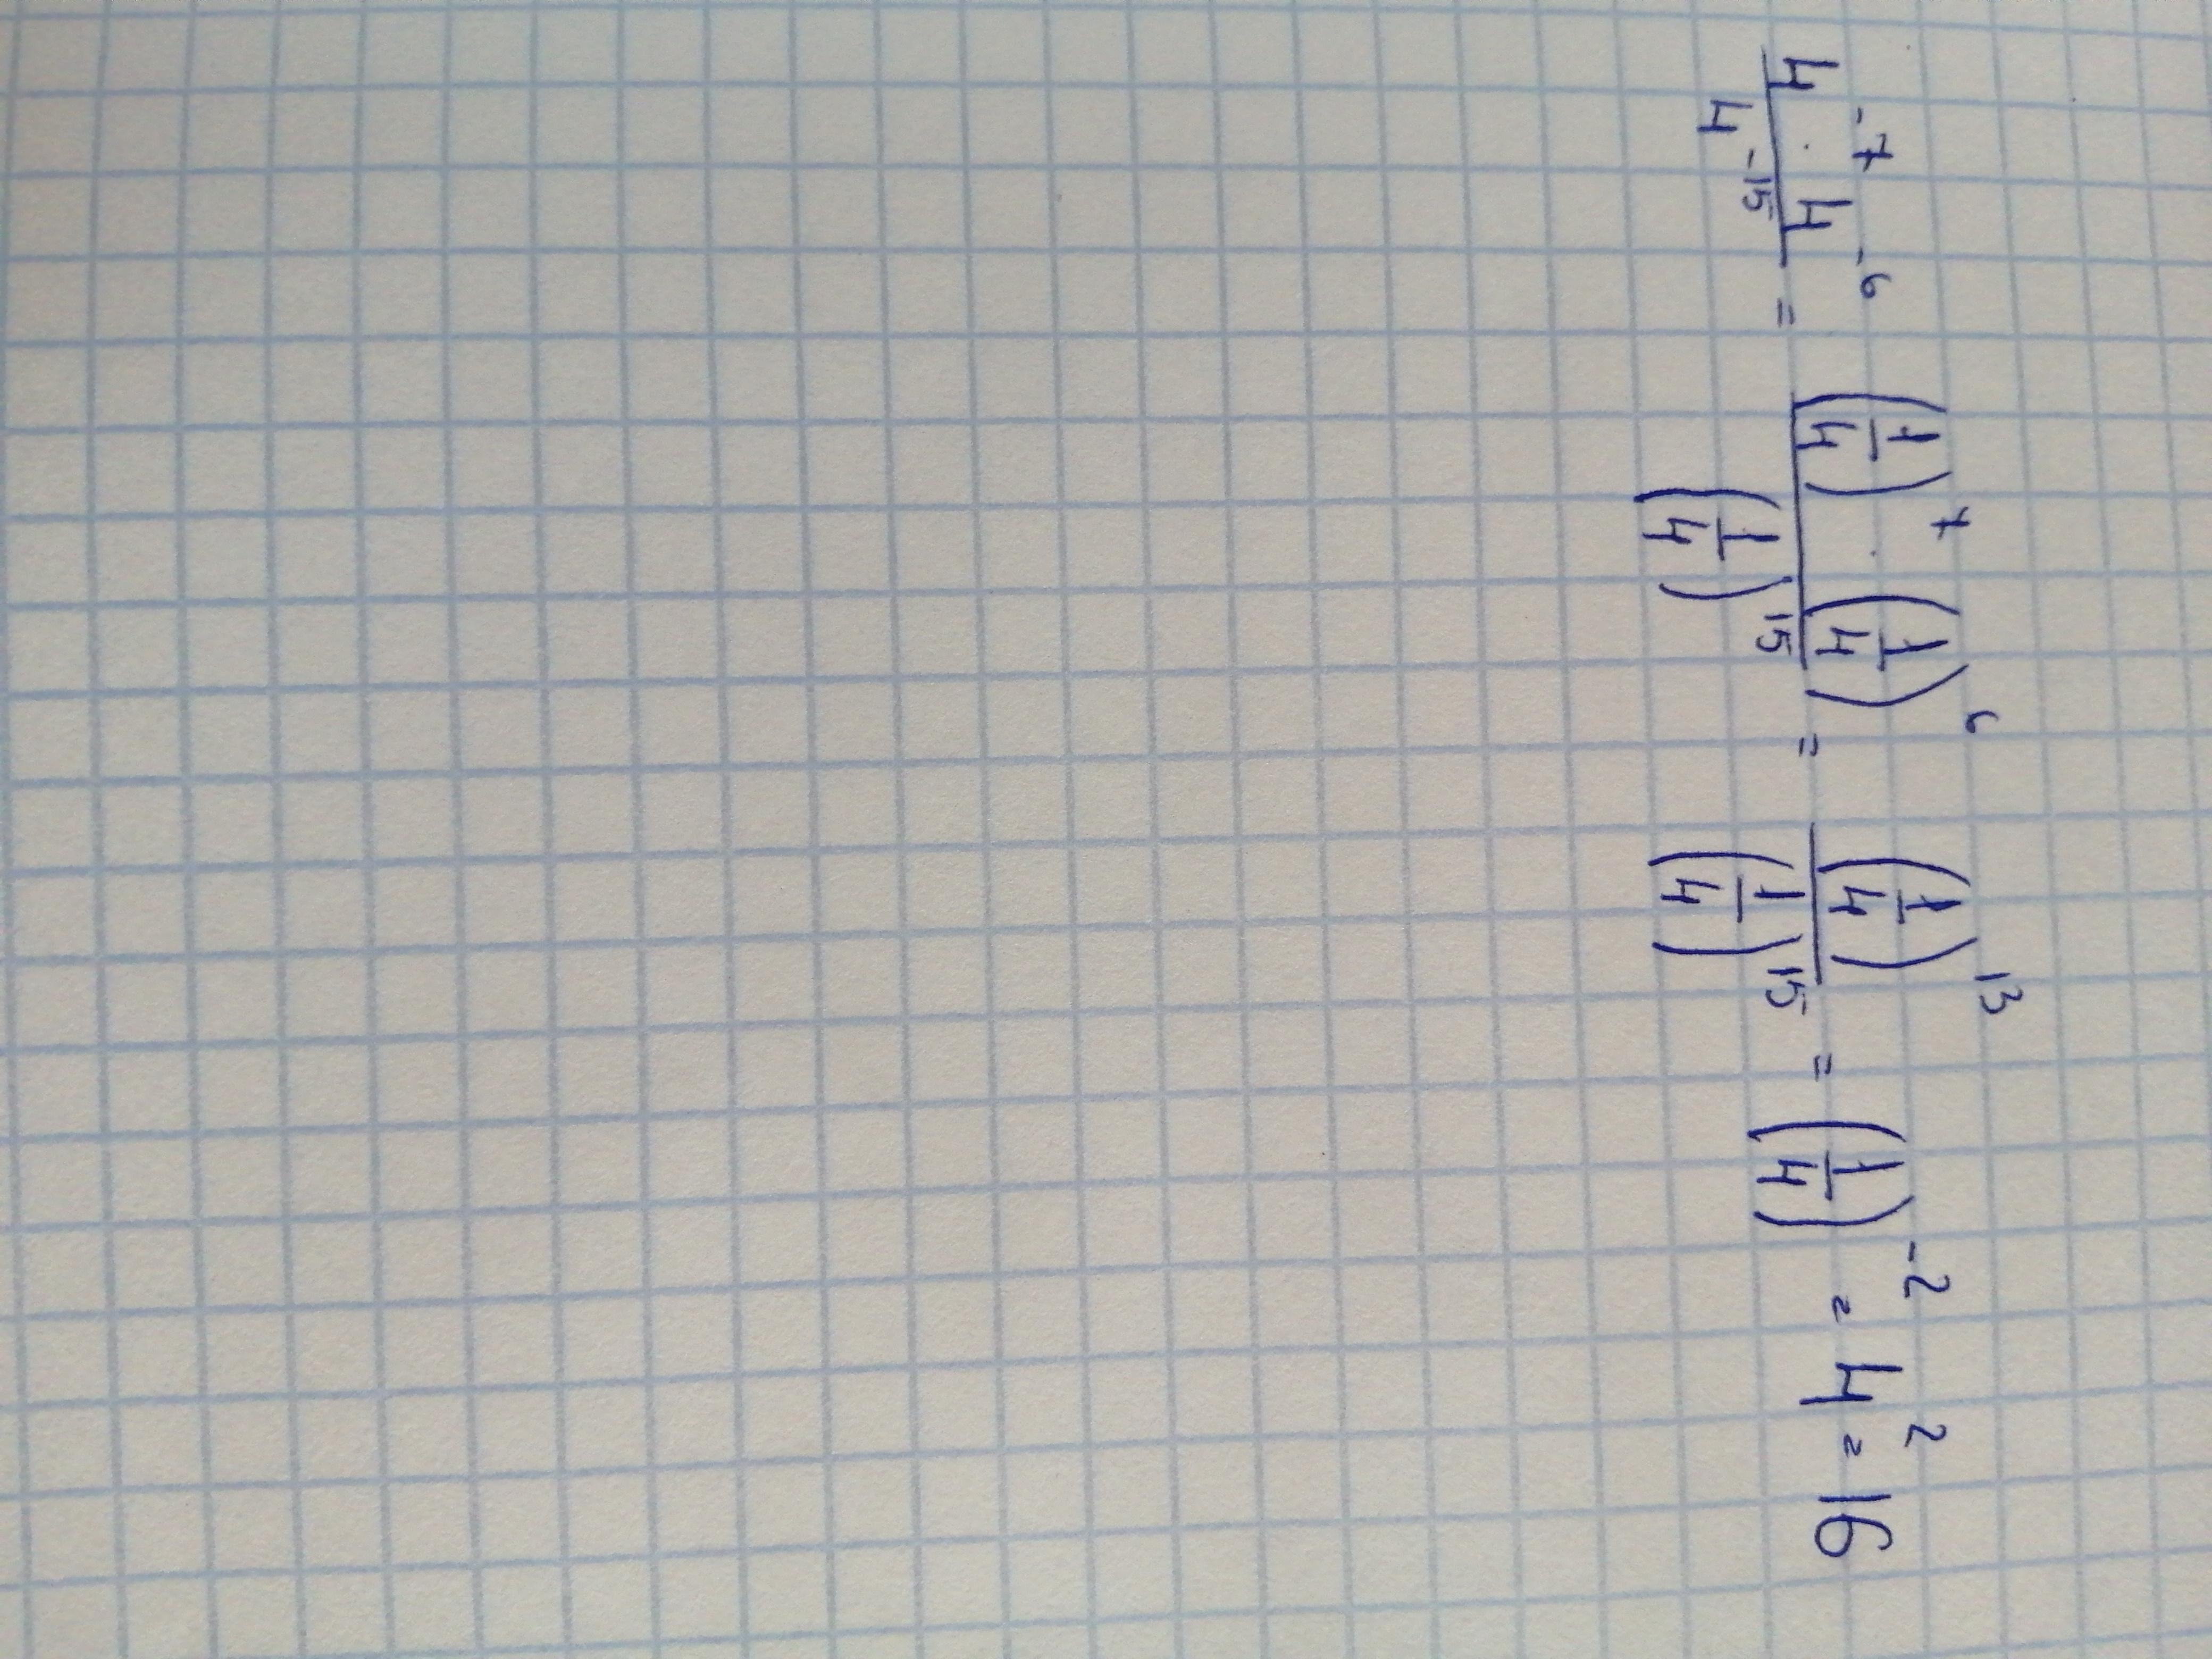 $\frac{4^{-7} \cdot 4^{-6}}{4^{-15}} = \frac{\left(\frac{1}{4}\right)^7 \cdot \left(\frac{1}{4}\right)^6}{\left(\frac{1}{4}\right)^{15}} = \frac{\left(\frac{1}{4}\right)^{13}}{\left(\frac{1}{4}\right)^{15}} = \left(\frac{1}{4}\right)^{-2} = 4^2 = 16$